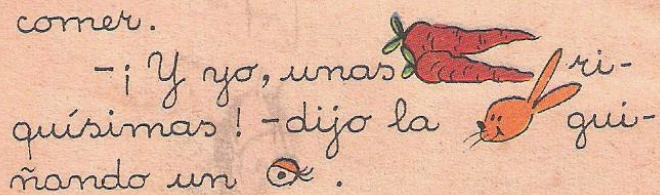 comer.
-¡Y yo, unas ri-
quísimas! -dijo la gui-
ñando un .